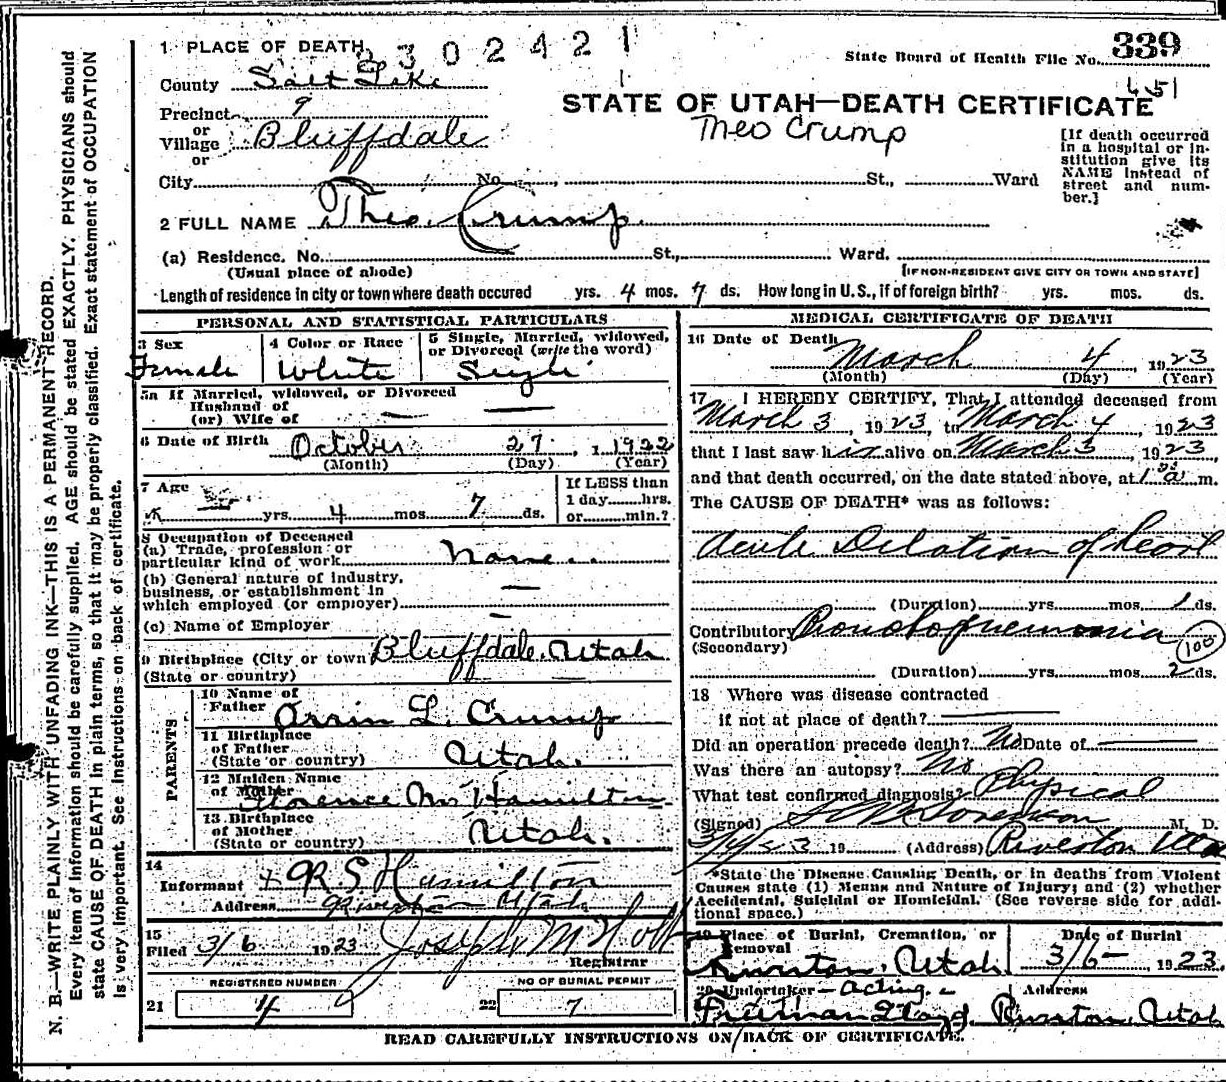 1 PLACE OF DEARTH 2302421
State Board of Health File No. 339
County Salt Lake
451
Precinct 9
STATE OF UTAH—DEATH CERTIFICATE
or
Village Bluffdale
Theo Crump
or
[If death occurred in a hospital or institution give its NAME instead of street and number.]
City No. St., Ward
2 FULL NAME Theo. Crump.
(a) Residence. No. St., Ward.
(Usual place of abode)
[IF NON-RESIDENT GIVE CITY OR TOWN AND STATE]
Length of residence in city or town where death occured yrs. 4 mos. 7 ds. How long in U.S., if of foreign birth? yrs. mos. ds.
PERSONAL AND STATISTICAL PARTICULARS
3 Sex
Female
4 Color or Race
White
5 Single, Married, widowed,
or Divorced (write the word)
Single
5a If Married, widowed, or Divorced
Husband of
(or) Wife of
6 Date of Birth October 27, 1 1922
(Month) (Day) (Year)
7 Age
yrs. 4 mos 7 ds.
If LESS than
1 day hrs.
or min.?
8 Occupation of Deceased
(a) Trade, profession or
particular kind of work none
(b) General nature of Industry,
business, or establishment in
which employed (or employer)
(c) Name of Employer
9 Birthplace (City or town Bluffdale. Utah
(State or country)
PARENTS
10 Name of
Father Orrin L. Crump
11 Birthplace
of Father
(State or country) Utah.
12 Maiden Name
of Mother Florence M. Hamilton
13 Birthplace
of Mother
(State or country) Utah.
14
Informant + R. S. Hamilton
Address Riverton Utah
15
Filed 3/6 1923 Joseph M Holt
Registrar
REGISTERED NUMBER
21 4
NO OF BURIAL PERMIT
22 7
MEDICAL CERTIFICATE OF DEATH
16 Date of Death March 4, 1923
(Month) (Day) (Year)
17 I HEREBY CERTIFY, That I attended deceased from
March 3, 1923, to March 4, 1923
that I last saw him alive on March 3, 1923,
and that death occurred, on the date stated above, at 1 a m.
The CAUSE OF DEATH* was as follows:
Acute Dilation of heart
(Duration) yrs mos 1 ds.
Contributory Bronchopnemonia
(Secondary)
100
(Duration) yrs mos 2 ds.
18 Where was disease contracted
if not at place of death?
Did an operation precede death? No Date of
Was there an autopsy? No
What test confirmed diagnosis? Physical
(Signed) Sorenson M. D.
3/4/23 19 (Address) Riverton Utah
*State the Disease Causing Death, or in deaths from Violent
Causes state (1) Means and Nature of Injury; and (2) whether
Accidental, Suicidal or Homicidal. (See reverse side for addi-
tional space.)
19 Place of Burial, Cremation, or
Removal
Riverton, Utah
Date of Burial
3/6- 1923.
20 Undertaker — acting.
Freeman Lloyd.
Address
Riverton, Utah
READ CAREFULLY INSTRUCTIONS ON BACK OF CERTIFICATE.
N. B.—WRITE PLAINLY WITH UNFADING INK—THIS IS A PERMANENT RECORD.
Every item of information should be carefully supplied. AGE should be stated EXACTLY. PHYSICIANS should
state CAUSE OF DEATH in plain terms, so that it may be properly classified. Exact statement of OCCUPATION
is very important. See instructions on back of certificate.